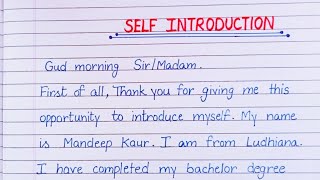 SELF INTRODUCTION
Gud morning Sir/Madam.
First of all, Thank you for giving me this
opportunity to introduce myself. My name
is Mandeep Kaur. I am from Ludhiana.
I have completed my bachelor degree